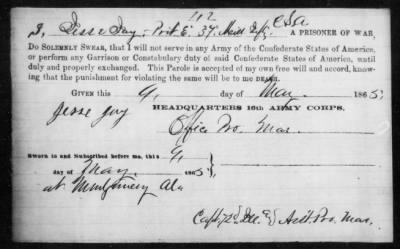 112
I, Jesse Jay, Pvt E. 37. Miss Inf, CSA A PRISONER OF WAR,
DO SOLEMNLY SWEAR, that I will not serve in any Army of the Confederate States of America,
or perform any Garrison or Constabulary duty of said Confederate States of America, until
duly properly exchanged. This Parole is accepted of my own free will and accord, know-
ing that the punishment for violating the same will be to me DEATH.
GIVEN this 9, day of May 1865;
Jesse Jay HEADQUARTERS 16th ARMY CORPS,
Office Pro. Mar.
Sworn to and Subscribed before me, this 9,
day of May 1865
at Montgomery Ala
Capt 72d Ill. & Asst. Pro. Mar.